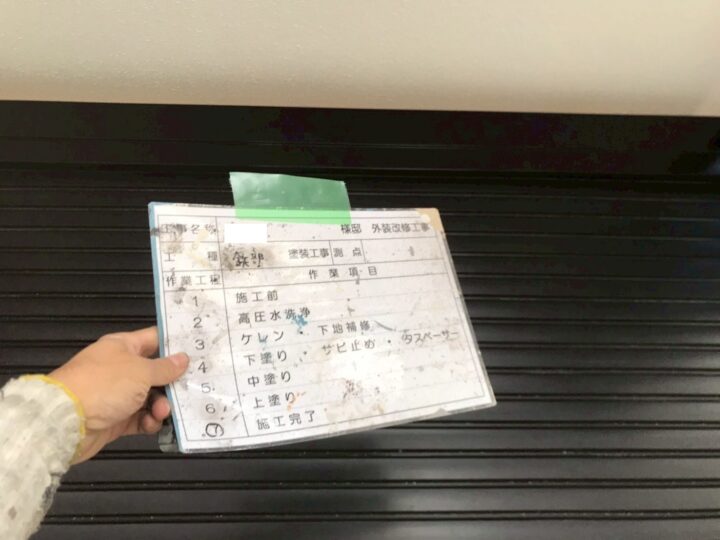 工事名称 様邸 外装改修工事
工種 鉄部 塗装工事 測点
作業工程 作業項目
1 施工前
2 高圧水洗浄
3 ケレン・下地補修
4 下塗り・サビ止め・タスペーサー
5 中塗り
6 上塗り
⑦ 施工完了